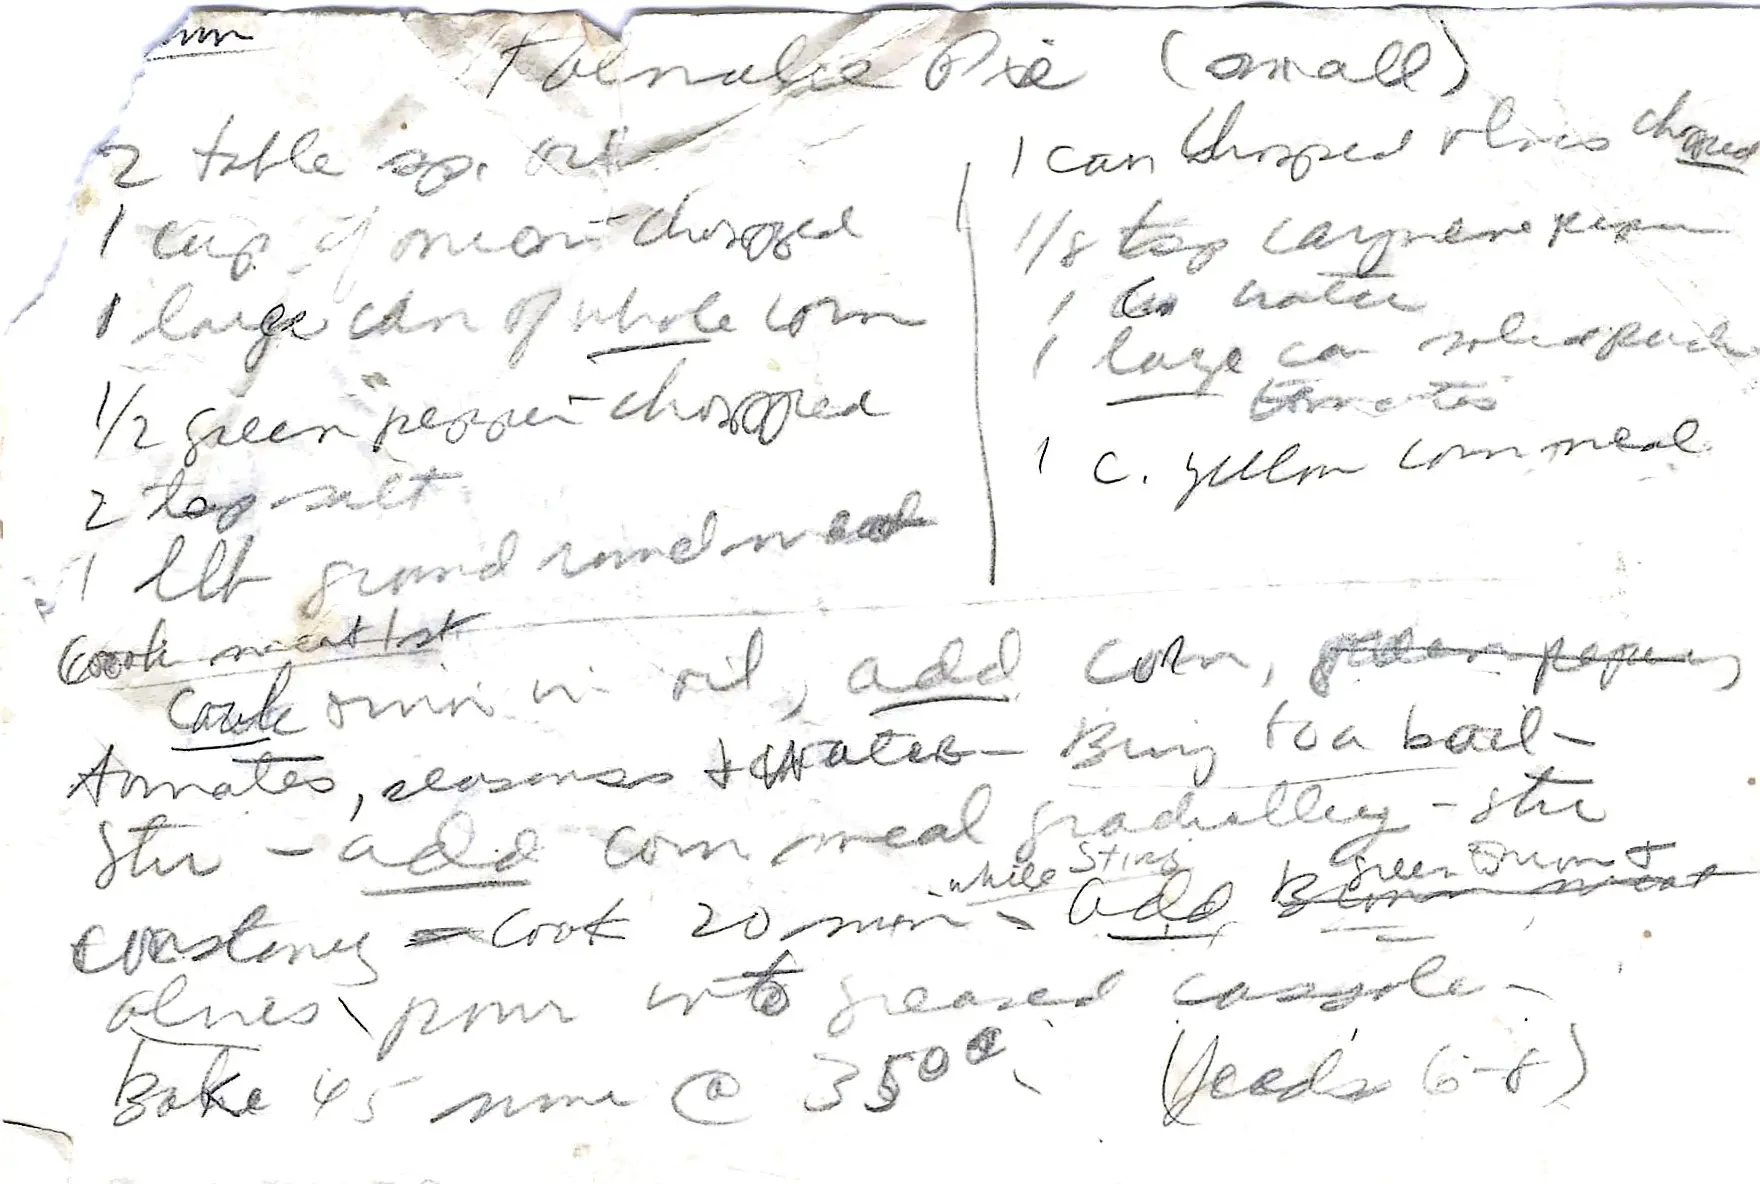 Tamale Pie (small)
2 table sp. oil
1 cup of onion - chopped
1 large can of whole corn
1/2 green pepper - chopped
2 tsp salt
1 lb ground round meat
1 can chopped olives chopped
1/8 tsp cayenne pepper
1 c. water
1 large can solid pack
tomatoes
1 c. yellow corn meal
Cook meat 1st
Cook onion in oil, add corn, green peppers,
tomatoes, seasons + water - Bring to a boil -
Stir - add corn meal gradually - stir
while string green onion +
constany - cook 20 min - add
olives, pour into greased cassrole -
Bake 45 min @ 350° (feeds 6-8)